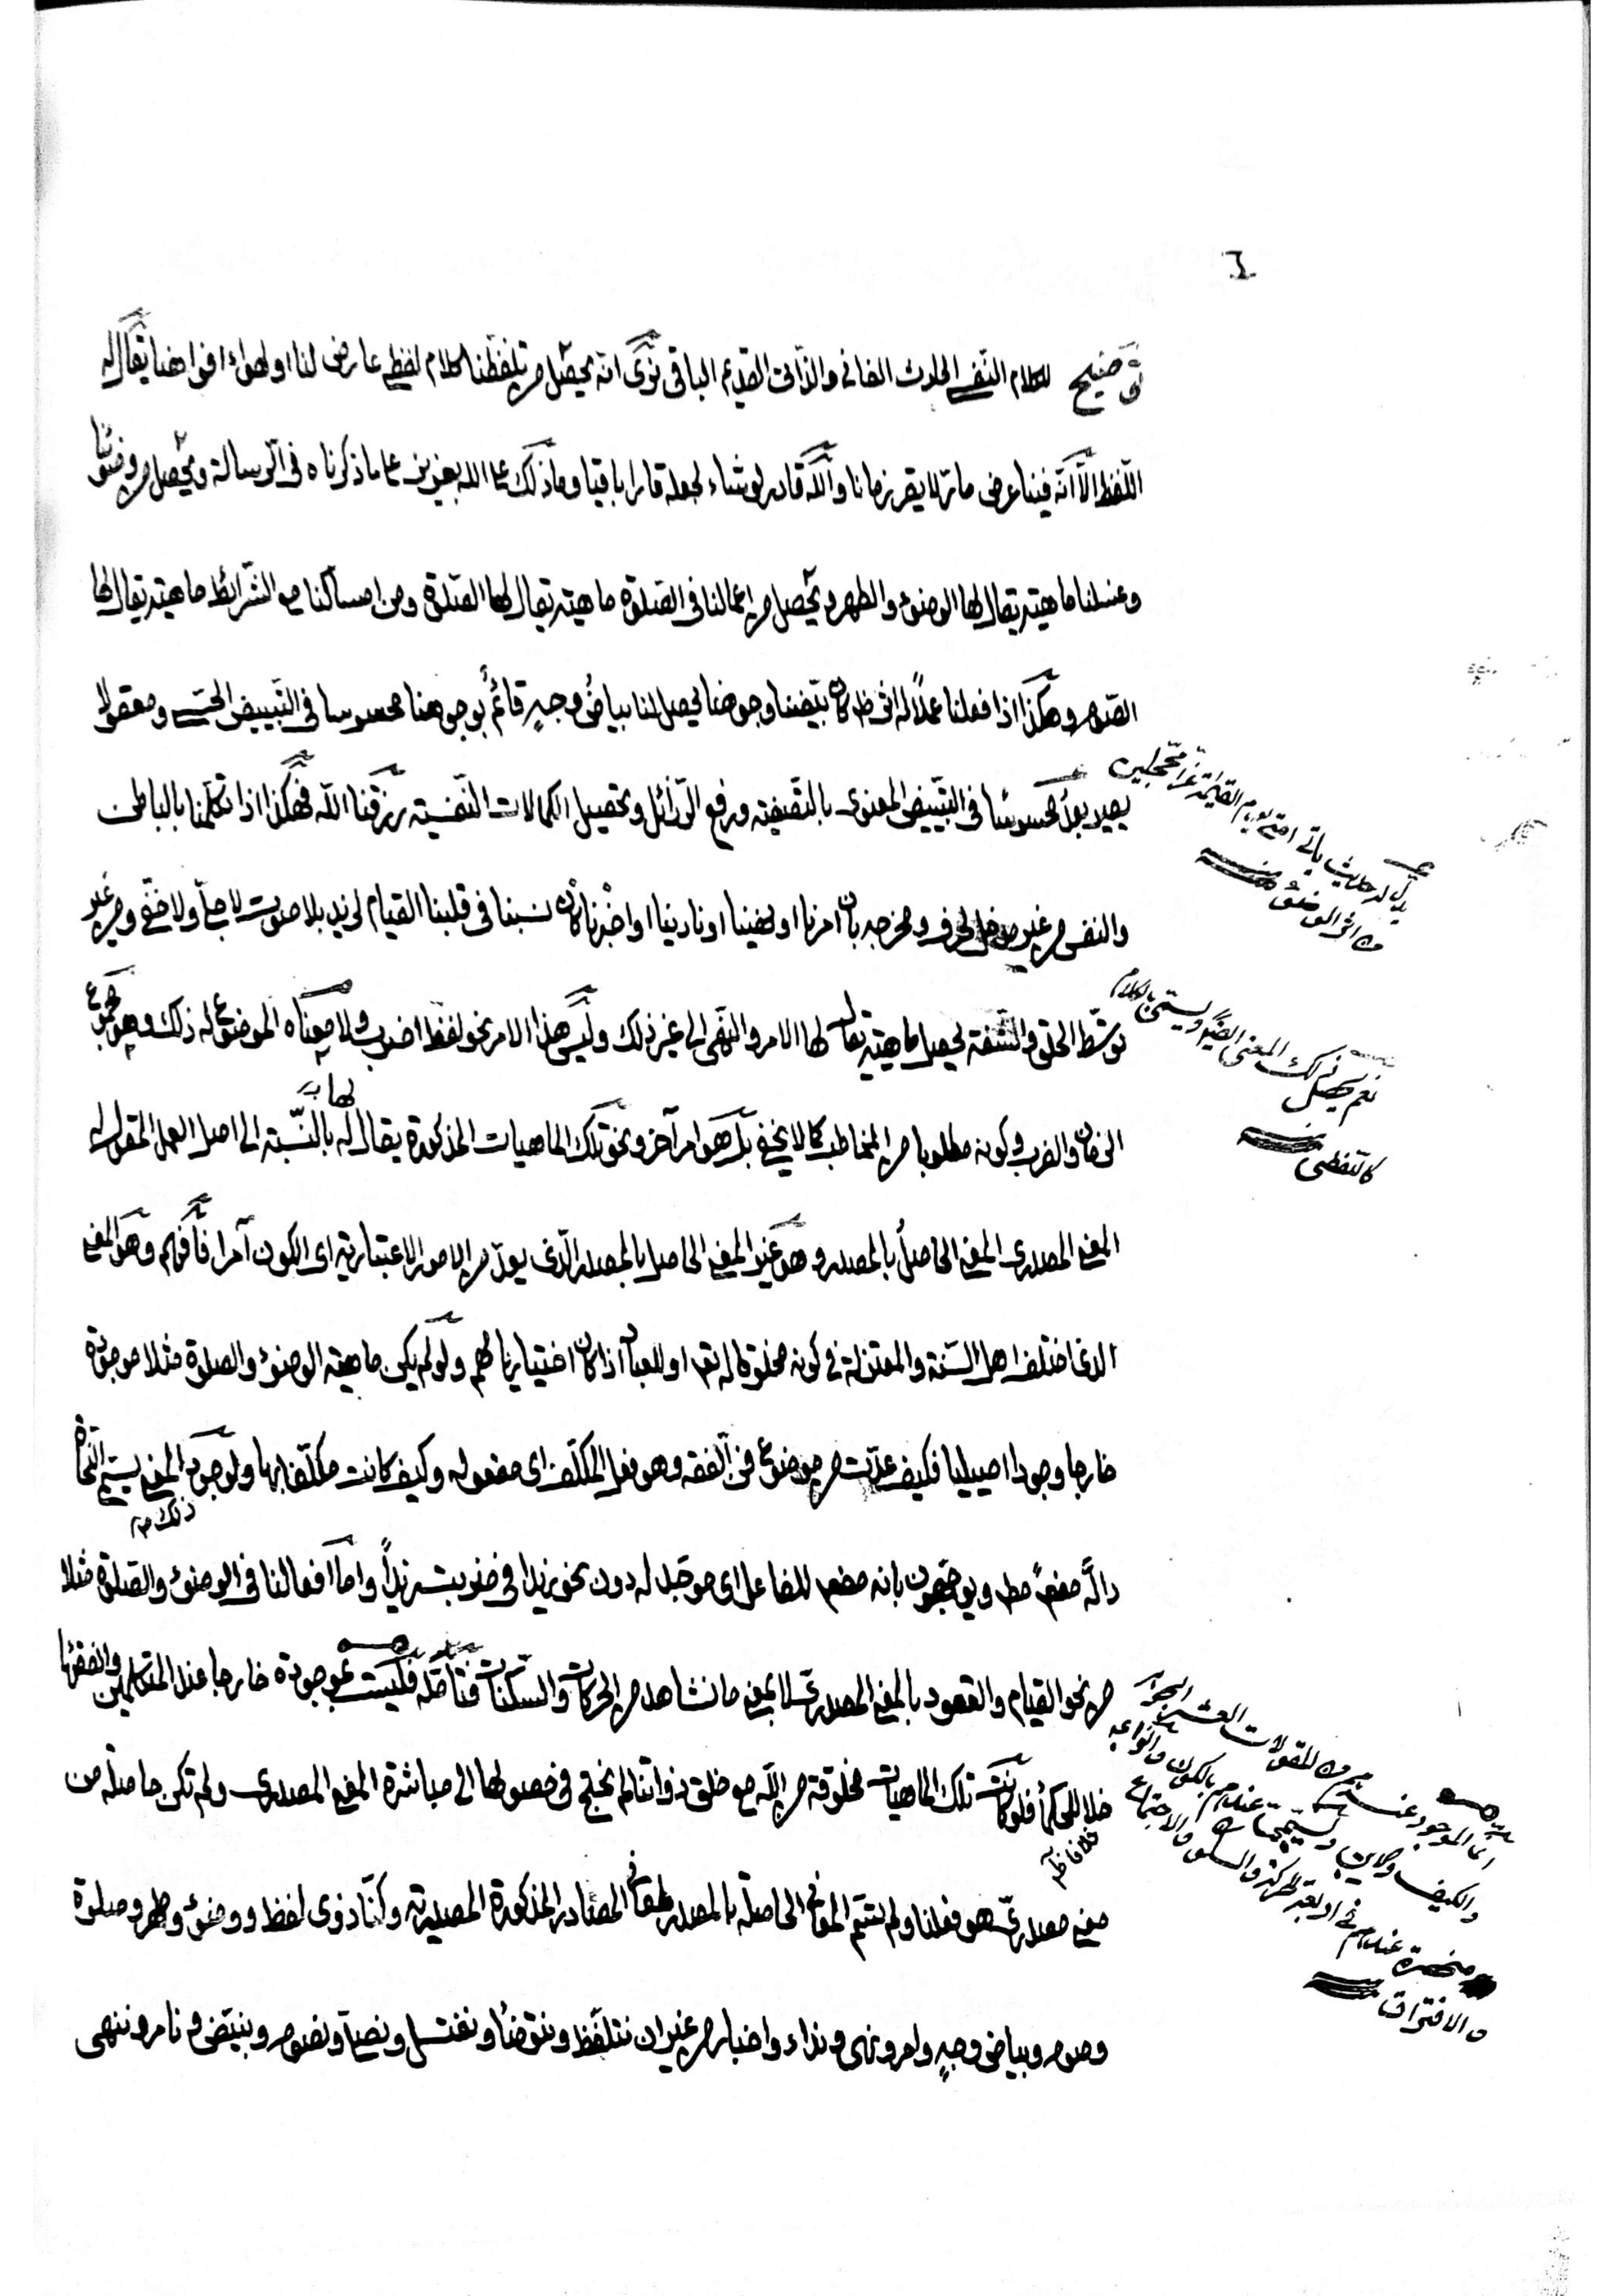 توضيح للكلام النفسي الحادث الفاني والذاتي القديم الباقي نرى انه يحصل من تلفظنا كلام لفظي عارض لنا او لهواء افواهنا يقال له
اللفظ الّا انّه فينا عرض مارّ لا يقر زمانا واللّه قادر لو شاء لجعله قارا باقيا وما ذلك على الله بعزيز على ما ذكرناه في الرسالة ويحصل من وضوئنا
وغسلنا ماهية يقال لها الوضوء والطهر ويحصل من اعمالنا في الصلوة ماهية يقال لها الصلوة ومن امساكنا مع الشرائط ماهية يقال لها
الصوم وهكذا اذا فعلنا عملاً له اثر ظ كان بيّضنا وجوهنا يحصل لنا بياضُ وجهٍ قائمٌ بوجوهنا محسوسا في التبييض الحسي ومعقولا
يصير بعدُ محسوسًا في التبييض المعنوى بالتصفية ورفع الرّذائل وتحصيل الكمالات النفسية رزقنا اللّه فهكذا اذا تكلّمنا بالباطن
والنفس من غير مدخل لحرف ومخرجه بان امرنا او نهينا او نادينا او اخبرنا كأن نسبنا في قلبنا القيام لزيد بلا صوت لا جليّ ولا خفي ومن غير
توسّط الحلق والشفة يحصل ماهية يقال لها الامر والنهى الى غير ذلك وليس هذا الامر نحو لفظ اضرب ولا معناه الموضوع له ذلك وهو مجموع
الزمان والضرب وكونه مطلوبا من المخاطب كما لا يخفى بل هو امر آخر ونحو تلك الماهيات المذكورة يقال لها بالنّسبة الى اصل العمل المقول له
المعنى المصدرى المعنى الحاصلُ بالمصدر وهو غير المعنى الحاصل بالمصدر الّذى يعدّ من الامور الاعتبارية اى الكون آمرا فافهم وهو المعنى
الذى اختلف اهل السّنة والمعتزلة في كونه مخلوقا له تعه او للعباد اذا كان اختياريا لهم ولو لم يكن ماهية الوضوء والصلوة مثلا موجودة
خارجا وجودا اصيليا فكيف عدّت من موضوع فنّ الفقه وهو فعل المكلّف اى مفعوله وكيف كانت مكلّفا بها ولوجود ذلك المعنى يسمّى النحاة
دالّه مفعولا مط ويوجّهون بانه مفعول للفاعل اى موجَد له دون نحو زيدا في ضربت زيداً واما افعالنا في الوضوء والصلوة مثلا
من نحو القيام والقعود بالمعنى المصدرى لا بمعنى ما نشاهد من الحركات والسكنات فتأمّله فليست بموجودة خارجا عند المتكلمين وافقها
خلافا للحكماء فلو كانت تلك الماهيات مخلوقة من اللّه مع خلق ذواتنا لم نحتج في حصولها الى مباشرة المعنى المصدرى ولم تكن حاصلة من
معنى مصدريّ هو فعلنا ولم تسمّ المعاني الحاصلة بالمصدر المصادر المذكورة المصدرية وكنّا ذوى لفظ ووضوء وطهر وصلوة
وصوم وبياض وجهٍ وامر ونهى ونداء واخبار من غير ان نتلفّظ ونتوضأ ونغتسل ونصلّي ونصوم ونبيّض ونامر وننهى
يدل له حديث ياتي امتي يوم القيامة غرا محجلين
من اثر الوضوء منه
نعم يحصل بذلك المعنى ايضا ويسمى بالكلام
كاللفظى منه
انما الموجود عندهم من المقولات العشر الجواهر
والكيف والاين ويسمى عندهم بالكون وانواعه
منحصرة عندهم في اربعة الحركة والسكون والاجتماع
والافتراق منه